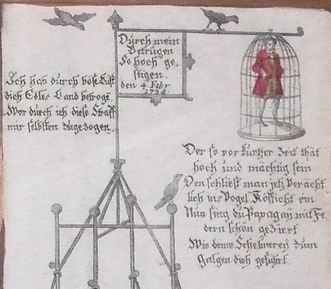 Durch mein
Betrügen
So hoch ge
stigen.
den 4 Febr
1738
Ich hab durch böse List
dich Edles Land betrogē
Wor durch ich diese Straff
mir selbsten zugezogen.
Der so vor kurtzer Zeit that
hoch und mächtig sein
Den schliest man jetz veracht
lich ins Vogel Kefficht ein
Nun sing du Papagay mit Fe
dern schön geziert
Wie deine Schelmerey zum
Galgen dich geführt.